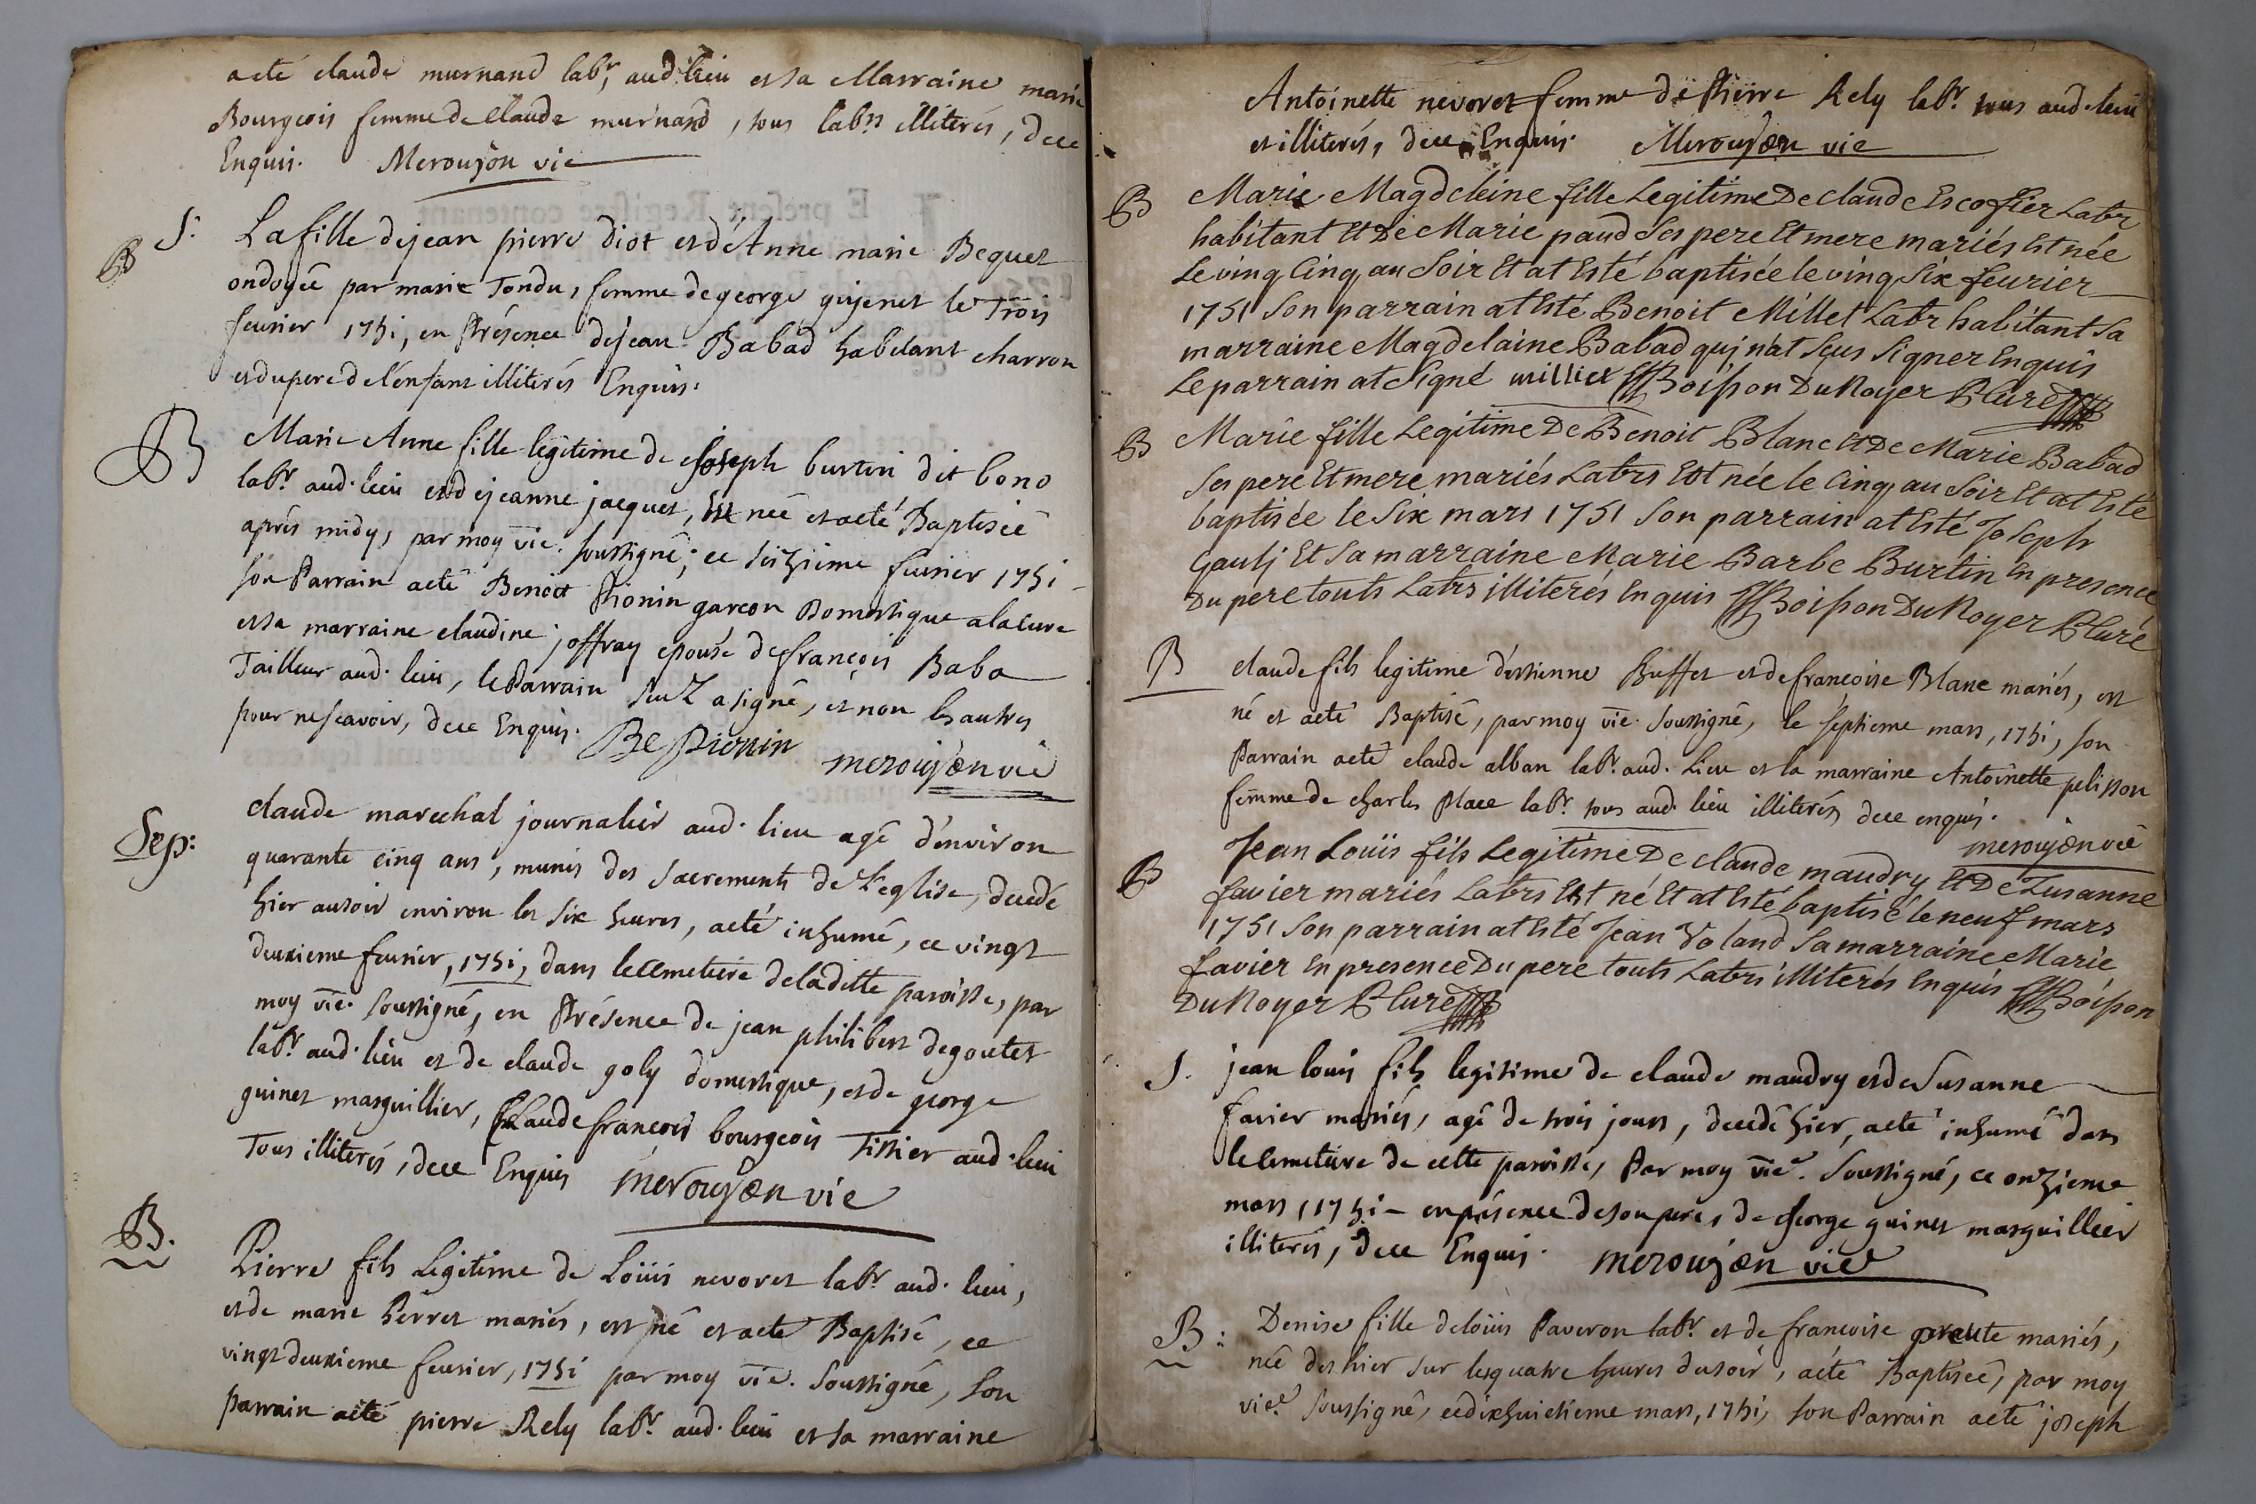 acté claude murnand labr, aud. lieu et sa Marraine marie
Bourgeois femme de claude murnand, tous labrs illiterés, de ce
Enquis. Meroujon vic
S: B La fille de jean pierre diot et d'Anne marie Bequet
ondoyée par marie Tondu, femme de george gujenet le Trois
feuvrier 1751, en présence de jean Babad habitant charron
et du pere de l'enfant illiterés Enquis.
B Marie Anne fille legitime de joseph burtin dit bono
labr. aud. lieu et de jeanne jacquet, Est née et acté Baptiseé
aprés midy, par moy vic. soussigné, ce seizieme feuvrier 1751
son Parrain acté Benoit Pionin garcon Domestique a la cure
et sa marraine claudine joffray epouse de françois Baba
Tailleur aud. lieu, le Parrain seul a signé, et non les autres
pour ne scavoir, de ce Enquis. Be Pionin meroujon vic
Sep: claude marechal journalier aud. lieu agé d'environ
quarante cinq ans, munis des sacrements de L'eglise, decedé
hier au soir environ les six heures, acté inhumé, ce vingt
deuxieme feuvrier, 1751, dans le cemetiere de laditte paroisse, par
moy vic. soussigné, en Présence de jean philibert degoutet
labr. aud. lieu et de claude goly domestique, et de george
guinet marguillier, Claude francois bourgeois Tissier aud. lieu
Tous illiterés, de ce Enquis meroujon vic
B. Pierre fils Legitime de Loüis nevoret labr. aud. lieu,
et de marie Perret mariés, est né et acté Baptisé, ce
vingt deuxieme feuvrier, 1751 par moy vic. soussigné, son
parrain acté pierre Rely labr. aud. lieu et sa marraine
Antoinette nevoret femme de Pierre Rely labr. tous aud. lieu
et illiterés, de ce Enquis. Meroujon vic
B Marie Magdeleine fille Legitime De claude Escoffier Labr
habitant Et De Marie paud Ses pere Et mere mariés Est née
Le ving Cinq au Soir Et at Esté baptisée le ving Six feurier
1751 Son parrain at Esté Benoit Millet Labr habitant Sa
marraine Magdelaine Babad quj n'at Sçus Signer Enquis
Le parrain at Signé milliet Boisson Du Noyer Curé
B Marie fille Legitime De Benoit Blanc Et De Marie Babad
Ses pere Et mere mariés Labrs Est née le Cinq au Soir Et at Esté
baptisée le Six mars 1751 Son parrain at Esté Joseph
Gaulj Et Sa marraine Marie Barbe Burtin En presence
Du pere touts Labrs illiterés Enquis Boisson Du Noyer Curé
B claude fils legitime d'estienne Buffet et de francoise Blanc mariés, est
né et acté Baptisé, par moy vic. soussigné, le septieme mars, 1751, son
Parrain acté claude alban labr. aud. Lieu et la marraine Antoinette pelisson
femme de charles place labr. tous aud. lieu illiterés de ce enquis.
meroujon vic
B Jean Loüis fils Legitime De claude maudry Et De Susanne
favier mariés Labrs Est né Et at Esté baptisé le neuf mars
1751 Son parrain at Esté Jean Voland Sa marraine Marie
favier En presence Du pere touts Labrs illiterés Enquis Boisson
Du Noyer Curé
S. jean louis fils legitime de claude maudry et de Susanne
favier mariés, agé de trois jours, decedé hier, acté inhumé dans
le cemetiere de cette paroisse, Par moy vic. soussigné, ce onzieme
mars, 1751 en présence de son pere, de george guinet marguillier
illiterés, de ce Enquis. meroujon vic
B: Denise fille de loüis Paveron labr. et de francoise mariés,
née des hier sur les quatre heures du soir, acté Baptiseé, par moy
vic. soussigné, ce dixhuictieme mars, 1751, son Parrain acté joseph